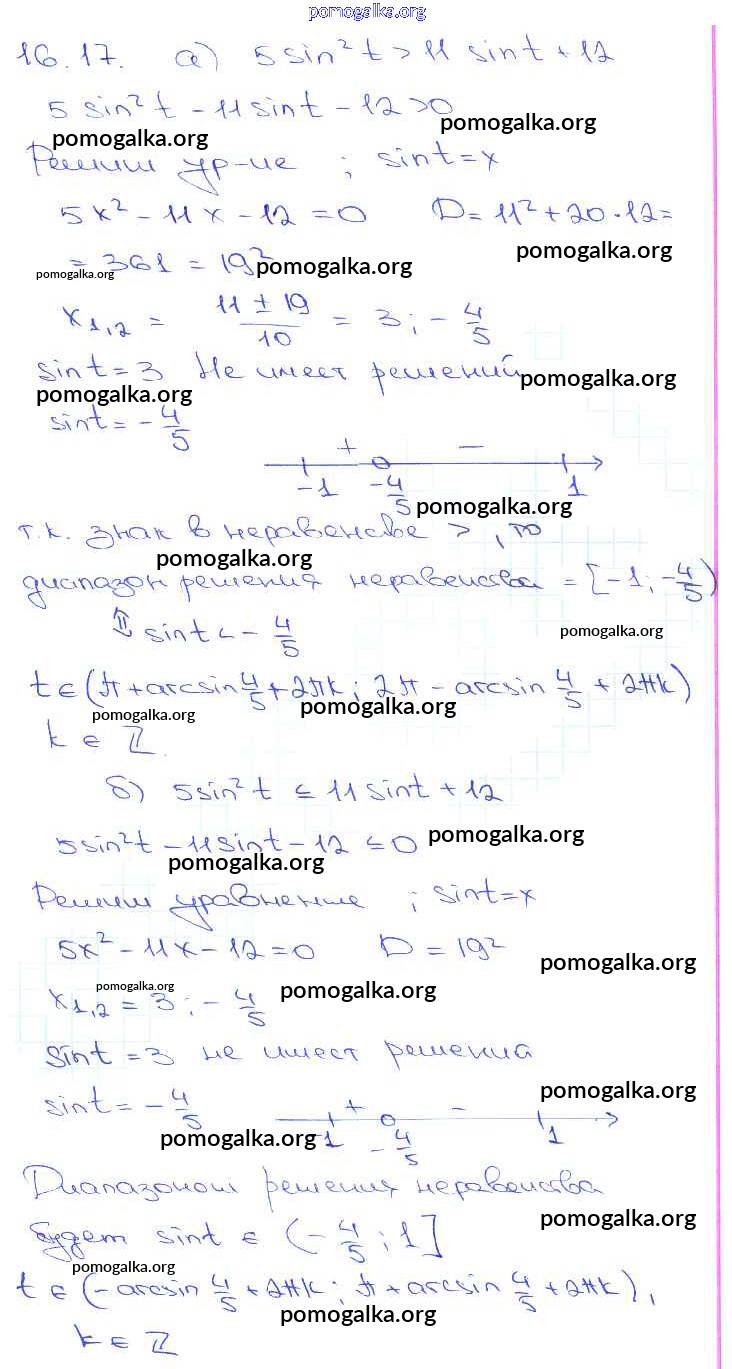 pomogalka.org
16.17. а) 5 sin² t > 11 sin t + 12
5 sin² t - 11 sin t - 12 > 0
pomogalka.org pomogalka.org
Решим ур-ие ; sin t = x
5x² - 11x - 12 = 0 D = 11² + 20 · 12 =
pomogalka.org
= 361 = 19² pomogalka.org
pomogalka.org
x₁,₂ = (11 ± 19)/10 = 3 ; - 4/5
sin t = 3 Не имеет решений pomogalka.org
pomogalka.org
sin t = - 4/5
+ −
-1 -4/5 1
pomogalka.org
т.к. знак в неравенстве > , то
pomogalka.org
диапазон решения неравенства = [-1 ; -4/5)
⇕ sin t < - 4/5 pomogalka.org
t ∈ (π + arcsin 4/5 + 2πk ; 2π - arcsin 4/5 + 2πk)
pomogalka.org pomogalka.org
k ∈ ℤ
б) 5 sin² t ≤ 11 sin t + 12
5 sin² t - 11 sin t - 12 ≤ 0 pomogalka.org
pomogalka.org
Решим уравнение ; sin t = x
5x² - 11x - 12 = 0 D = 19²
pomogalka.org
pomogalka.org pomogalka.org
x₁,₂ = 3 ; - 4/5
sin t = 3 не имеет решения
pomogalka.org
sin t = - 4/5
+ −
-1 -4/5 1
pomogalka.org
Диапазоном решения неравенства
будет sin t ∈ (- 4/5 ; 1] pomogalka.org
pomogalka.org
t ∈ (- arcsin 4/5 + 2πk ; π + arcsin 4/5 + 2πk) ,
pomogalka.org
k ∈ ℤ